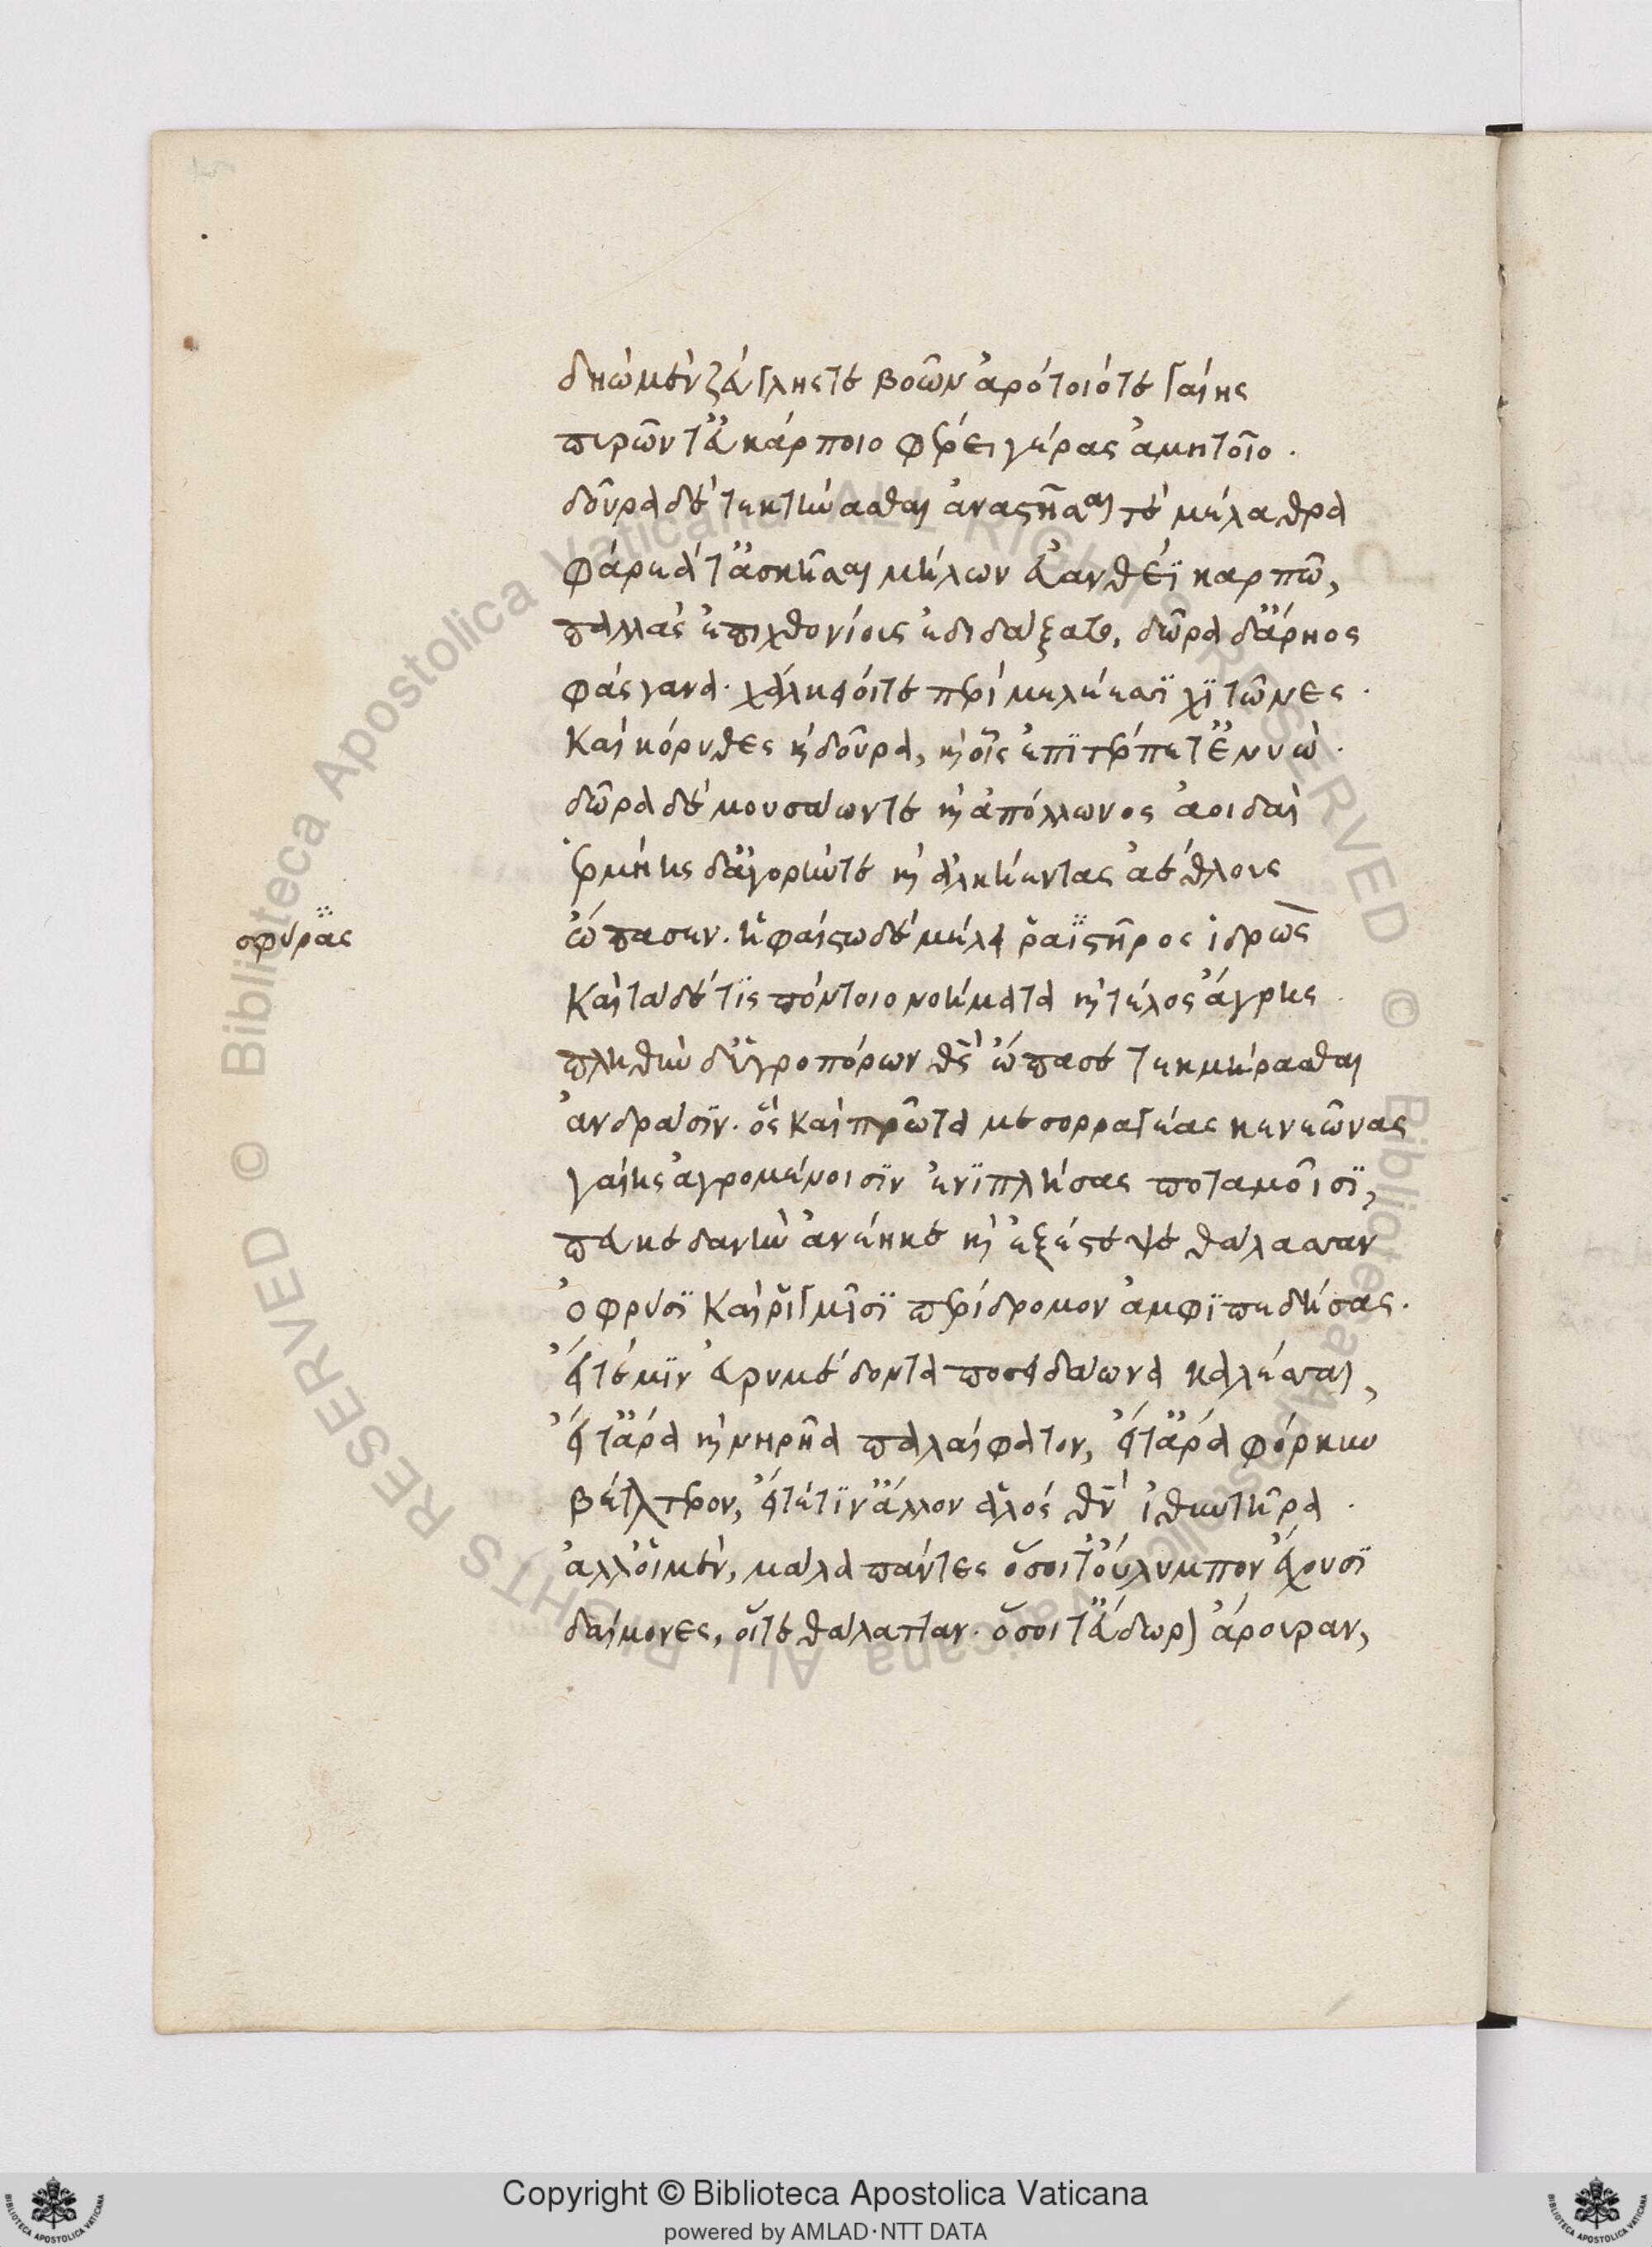 δηὼ μὲν ζεύγλης τε βοῶν ἀρότοιό τε γαίης
πυρῶν τ' εὐκάρποιο φέρει γέρας ἀμητοῖο.
δοῦρα δὲ τεκτήνασθαι ἀναστῆσαί τε μέλαθρα
φάρεά τ' ἀσκῆσαι μήλων εὐανθέϊ καρπῶ,
παλλὰς ἐπιχθονίους ἐδιδάξατο, δῶρα δ' ἄρηος
φάσγανα. χάλκειοί τε περὶ μελέεσσι χιτῶνες.
καὶ κόρυθες κ δοῦρα, κ οἷς ἐπιτέρπετ' ἐνυώ.
δῶρα δὲ μουσάων τε κ ἀπόλλωνος ἀοιδαὶ
ἑρμείης δ' ἀγορήν τε κ ἀλκήεντας ἀέθλους
σφύρας
ὤπασεν. ἡφαίστω δὲ μέλει ῥαιστῆρος ἱδρώς
καὶ τάδε τις πόντοιο νοήματα κ τέλος ἄγρης
πληθὺν δ' ὑγροπόρων θεὸς ὤπασε τεκμήρασθαι
ἀνδράσιν. ὃς καὶ πρῶτα μεσορραγέας κενεῶνας
γαίης ἀγρομένοισιν ἐνιπλήσας ποταμοῖσι,
πευκεδανὴν ἀνέηκε κ ἐξέστεψε θάλασσαν
ὀφρύσι καὶ ῥηγμῖσι περίδρομον ἀμφιπεδήσας.
εἴτε μιν εὐρυμέδοντα ποσειδάωνα καλέσσαι,
εἴτ' ἄρα κ νηρῆα παλαίφατον, εἴτ' ἄρα φόρκυν
βέλτερον, εἴτέ τιν' ἄλλον ἁλὸς θεὸν ἰθυντῆρα.
ἀλλ' οἱ μὲν, μάλα πάντες ὅσοι τ' οὔλυμπον ἔχουσι
δαίμονες, οἵ τε θάλατταν. ὅσοι τ' εὔδωρον ἄρουραν,
Copyright © Biblioteca Apostolica Vaticana
powered by AMLAD·NTT DATA